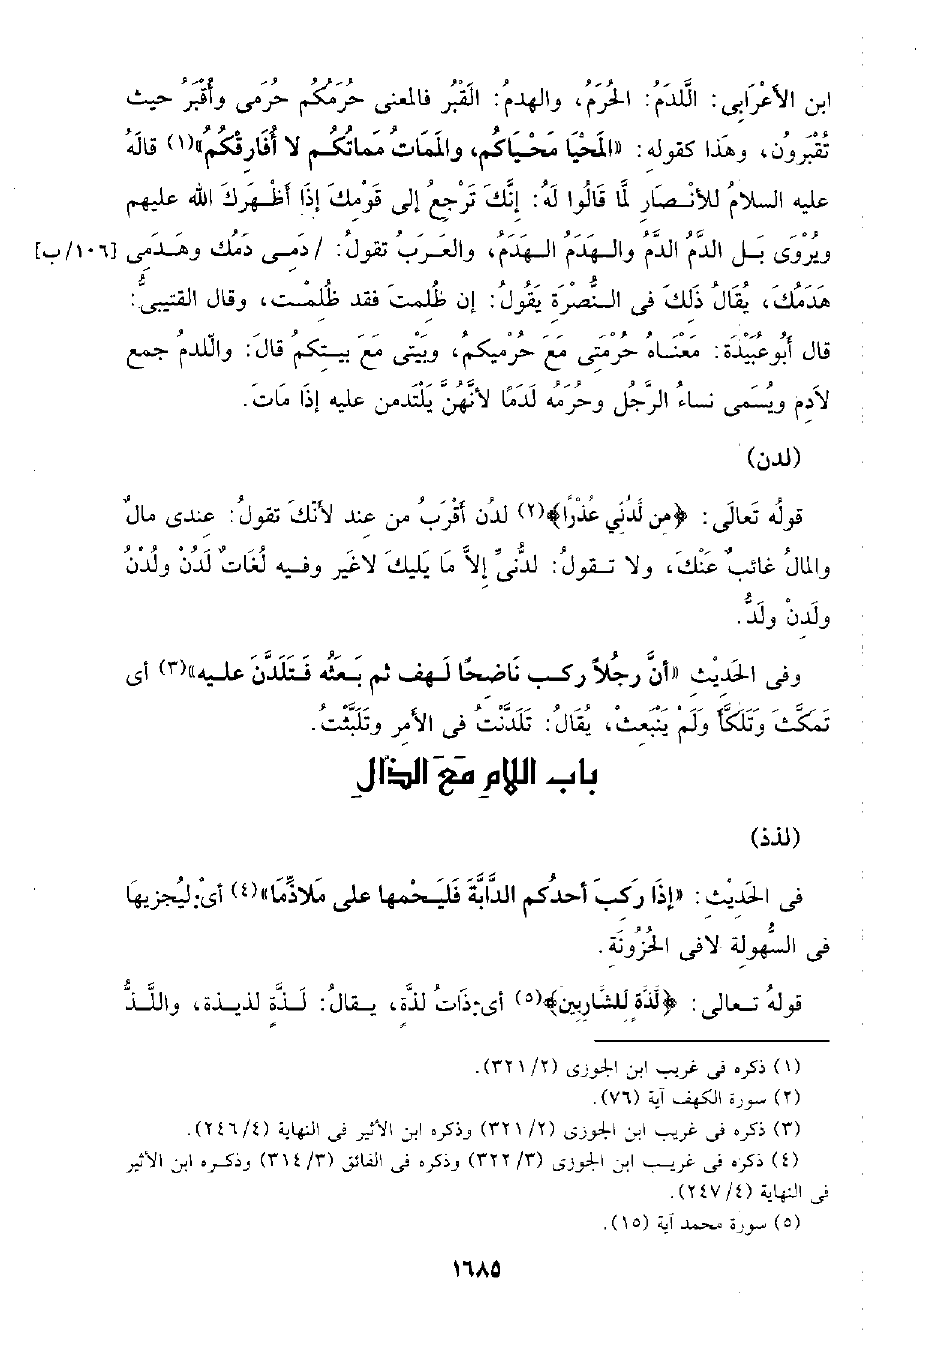 ابن الأعْرَابى: اللَّدَمُ: الحُرَمُ، والهدمُ: القَبْر فالمعنى حُرَمُكم حُرَمى وأُقْبَرُ حيث
تُقْبَرونُ، وهذا كقوله: «المَحْيَا مَحْيَاكُم، والممَاتُ مَمَاتكُم لا أُفَارِقكُم»(١) قالهُ
عليه السلامُ للأنْصارِ لَّمَا قَالُوا لَهُ: إنَّكَ تَرْجعُ إلى قَوْمكَ إذَا أظْهَرَكَ الله عليهم
ويُرْوَى بَل الدَّمُ الدمُ والهَدَمُ الهَدَمُ، والعَرَبُ تقولُ: / دَمى دَمُك وهَدَمى [١٠٦/ب]
هَدَمُكَ، يُقَالُ ذَلكَ فى النُّصْرَة يَقُولُ: إن ظُلمتَ فقد ظُلمْت، وقال القتيبىُّ:
قال أبُوعُبَيْدَة: مَعْنَاهُ حُرْمَتِى مَعَ حُرْمِيكم، وبَيْتى مَعَ بيتكم قال: واللدم جمع
لاَدِم ويُسَمى نساءُ الرَّجُل وحُرَمُه لَدَمًا لأنَّهُنَّ يَلْتَدمن عليه إذَا مَاتَ.
(لدن)
قولُه تَعالَى: ﴿مِن لَّدُنِّي عُذْرًا﴾(٢) لدُن أقْرَبُ من عند لأنكَ تقولُ: عندى مالٌ
والمالُ غائبٌ عَنْكَ، ولا تقولُ: لدُنِّى إلاَّ مَا يَليكَ لاغَير وفيه لُغَاتٌ لَدُنْ ولُدْنُ
ولَدِنْ ولَدُّ.
وفى الحَديْث «أنَّ رجُلاً ركب نَاضحًا لَهِف ثم بَعَثُه فَتَلَدَّنَ عليه»(٣) أى
تَمكَّثَ وَتَلَكَّأَ ولَمْ يَنْبَعثْ، يقَالُ: تَلَدَّنْتُ فى الأمرِ وتَلَبَّثْتُ.
باب اللامِ مَعَ الذالِ
(لذذ)
فى الحَديْث: «إذَا رَكبَ أحدُكم الدابَّةَ فَليَحْمها على مَلاَذِّمَا»(٤) أىْ: ليُجزيهَا
فى السُّهولة لافى الحُزُونَةِ.
قولهُ تعالى: ﴿لَّذَّة لِّلشَّارِبِين﴾(٥) أى: ذَاتُ لذةٍ، يقالُ: لَذَّة لذيذة، واللَّذُّ
(١) ذكره فى غريب ابن الجوزى (٣٢١/٢).
(٢) سورة الكهف آية (٧٦).
(٣) ذكره فى غريب ابن الجوزى (٣٢١/٢) وذكره ابن الأثير فى النهاية (٢٤٦/٤).
(٤) ذكره فى غريب ابن الجوزى (٣٢٢/٣) وذكره فى الفائق (٣١٤/٣) وذكره ابن الأثير
فى النهاية (٢٤٧/٤).
(٥) سورة محمد آية (١٥).
١٦٨٥